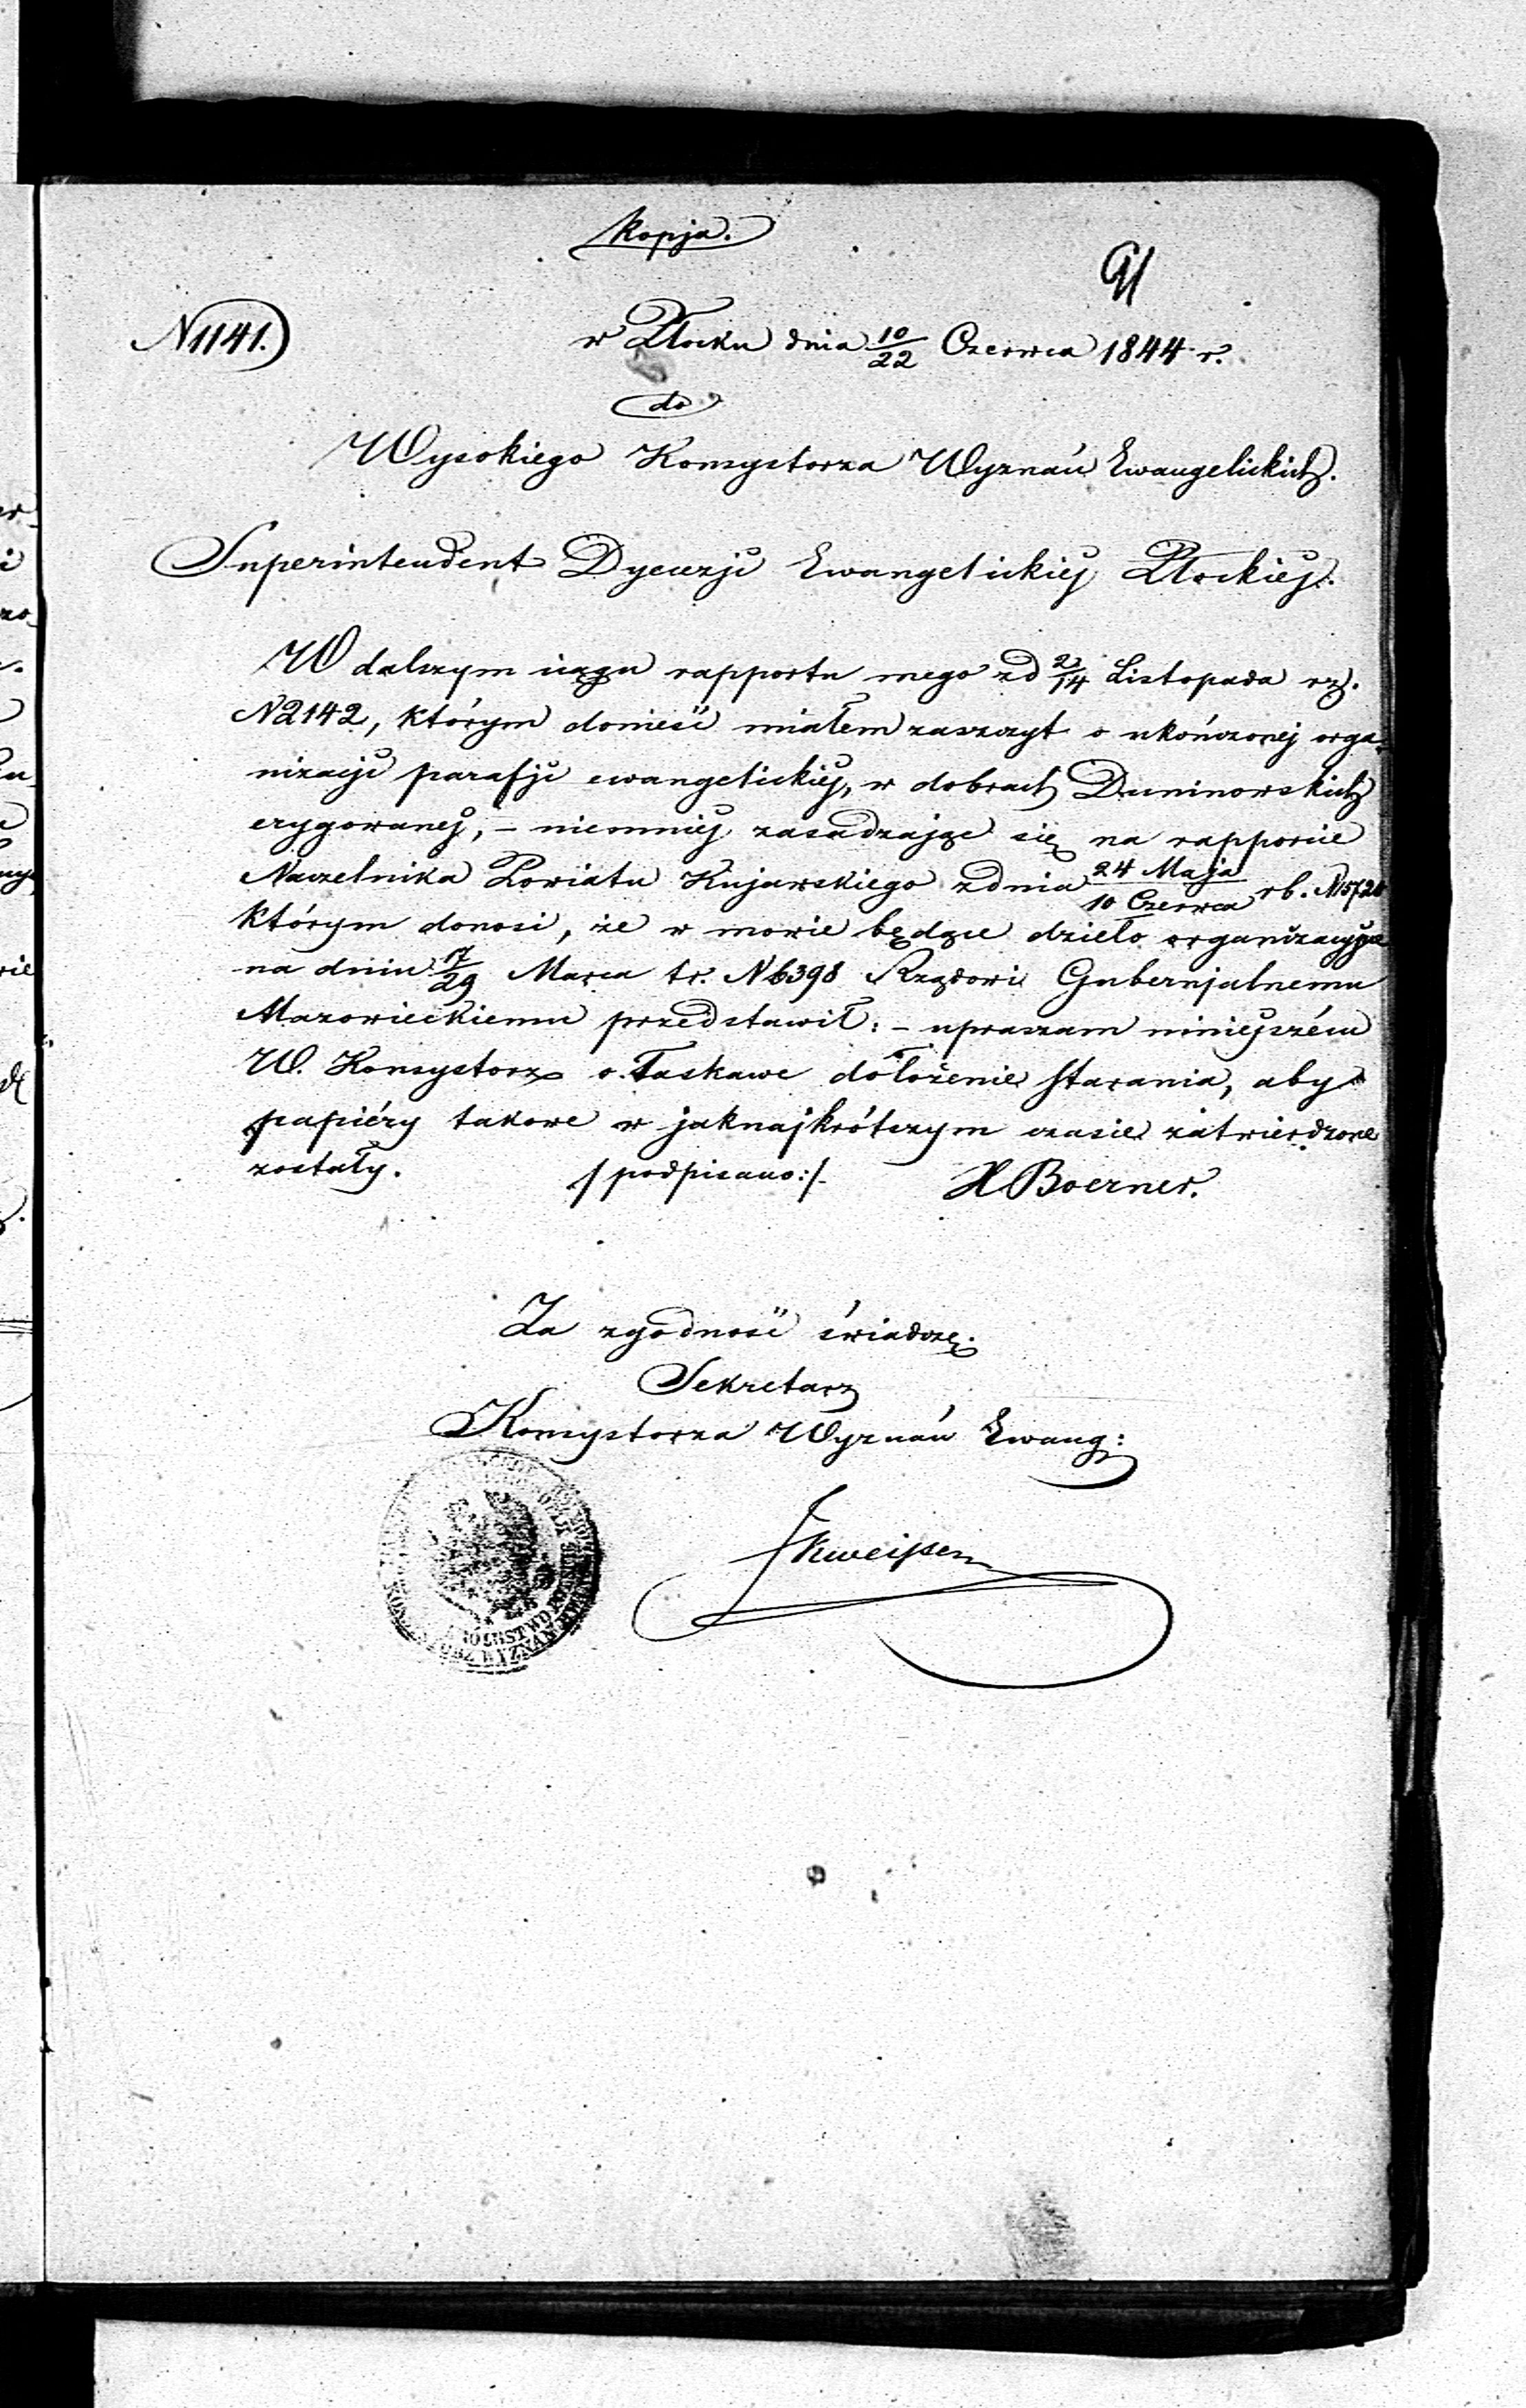 Kopja.
91
N1141.
w Płocku dnia 10/22 Czerwca 1844 r.
do
Wysokiego Konsystorza Wyznań Ewangelickich.
Superintendent Dyecezji Ewangelickiej Płockiej.
W dalszym ciągu rapportu mego zd 2/14 Listopada rz.
N2142, którym donieść miałem zaszczyt o ukończonej orga-
nizacji parafji ewangelickiej, w dobrach Duninowskich
erygowanej, – niemniej zasadzając się na rapporcie
Naczelnika Powiatu Kujawskiego zdnia 24 Maja/10 Czerwca rb. N
którym donosi, że w mowie będące dzieło organizacyjne
na dniu 17/29 Marca tr. N6398 Rządowi Gubernjalnemu
Mazowieckiemu przedstawił: – upraszam niniejszém
W. Konsystorz o łaskawe dołożenie starania, aby
papiéry takowe w jaknajkrótszym czasie zatwierdzone
zostały.
/podpisano:/ Boerner.
Za zgodność świadczę.
Sekretarz
Konsystorza Wyznań Ewang:
KRÓLESTWO POLSKIE
WYZNAŃ